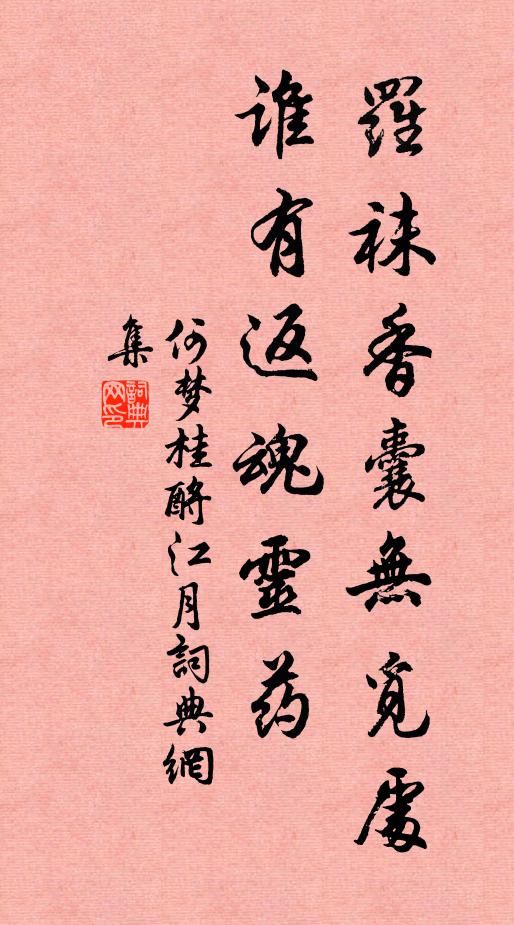 羅袜香囊無覓處
誰有返魂靈药
何梦桂酹江月詞典網
集
詞典網印